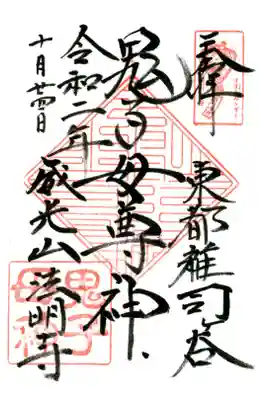 奉拝
東都雑司ヶ谷
鬼子母尊神
威光山
法明寺
令和二年
十月廿四日
鬼子
母神